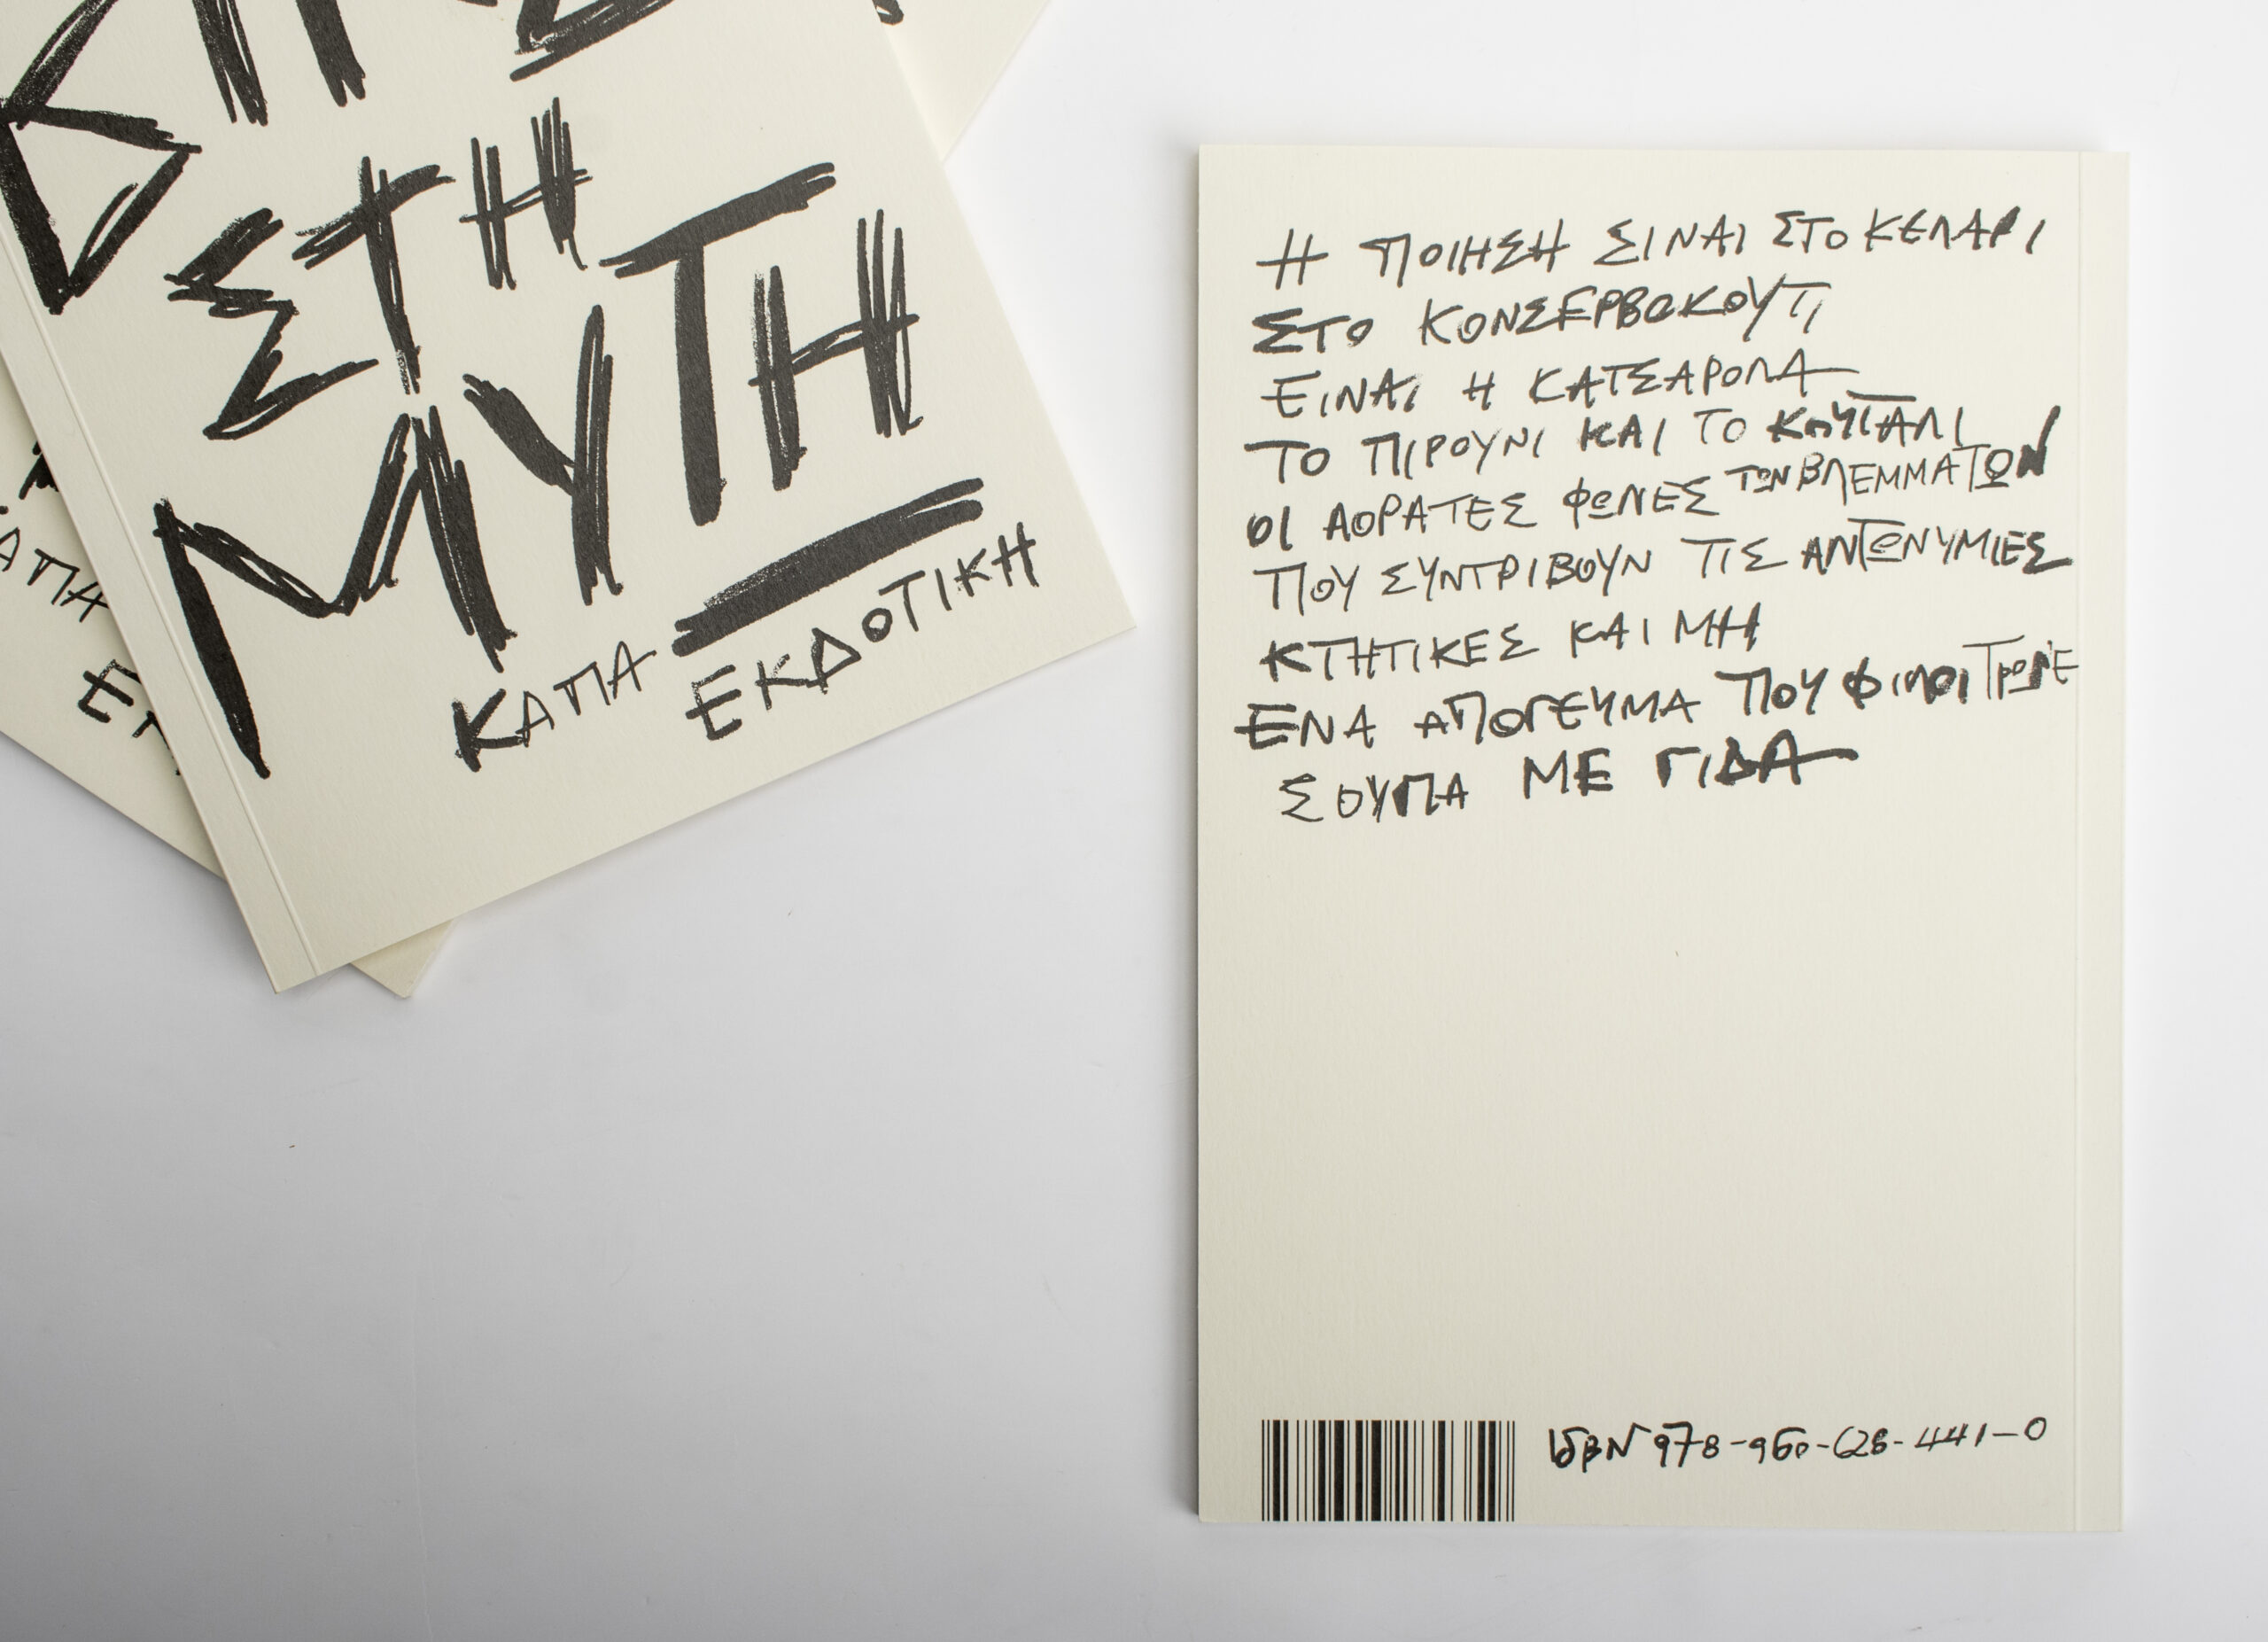 ΣΤΗ
ΜΥΤΗ
ΚΑΠΑ ΕΚΔΟΤΙΚΗ
ΑΠΑ
ΕΚ
Η ΠΟΙΗΣΗ ΣΙΝΑΙ ΣΤΟ ΚΕΛΑΡΙ
ΣΤΟ ΚΟΝΣΕΡΒΟΚΟΥΤΙ
ΕΙΝΑΙ Η ΚΑΤΣΑΡΟΛΑ
ΤΟ ΠΙΡΟΥΝΙ ΚΑΙ ΤΟ ΚΟΥΤΑΛΙ
ΟΙ ΑΟΡΑΤΕΣ ΦΩΝΕΣ ΤΩΝ ΒΛΕΜΜΑΤΩΝ
ΠΟΥ ΣΥΝΤΡΙΒΟΥΝ ΤΙΣ ΑΝΤΩΝΥΜΙΕΣ
ΚΤΗΤΙΚΕΣ ΚΑΙ ΜΗ
ΕΝΑ ΑΠΟΓΕΥΜΑ ΠΟΥ ΦΙΛΟΙ ΤΡΩΝΕ
ΣΟΥΠΑ ΜΕ ΓΙΔΑ
ISBN 978-960-628-441-0